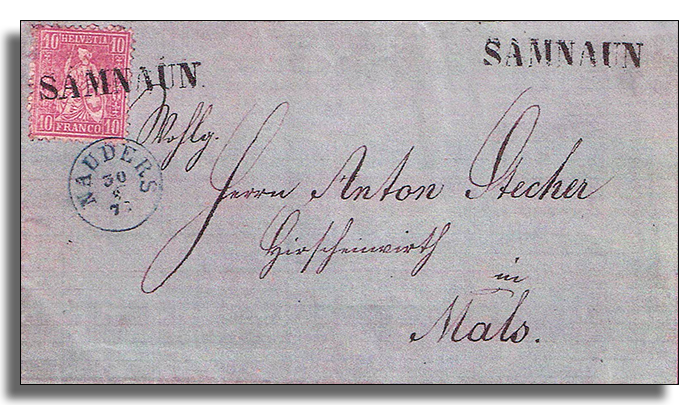 10 HELVETIA 10
SAMNAUN
SAMNAUN.
10 FRANCO 10
NAUDERS
30
Wohlg.
Herrn Anton Stecher
Hirschenwirth
in
Mals.